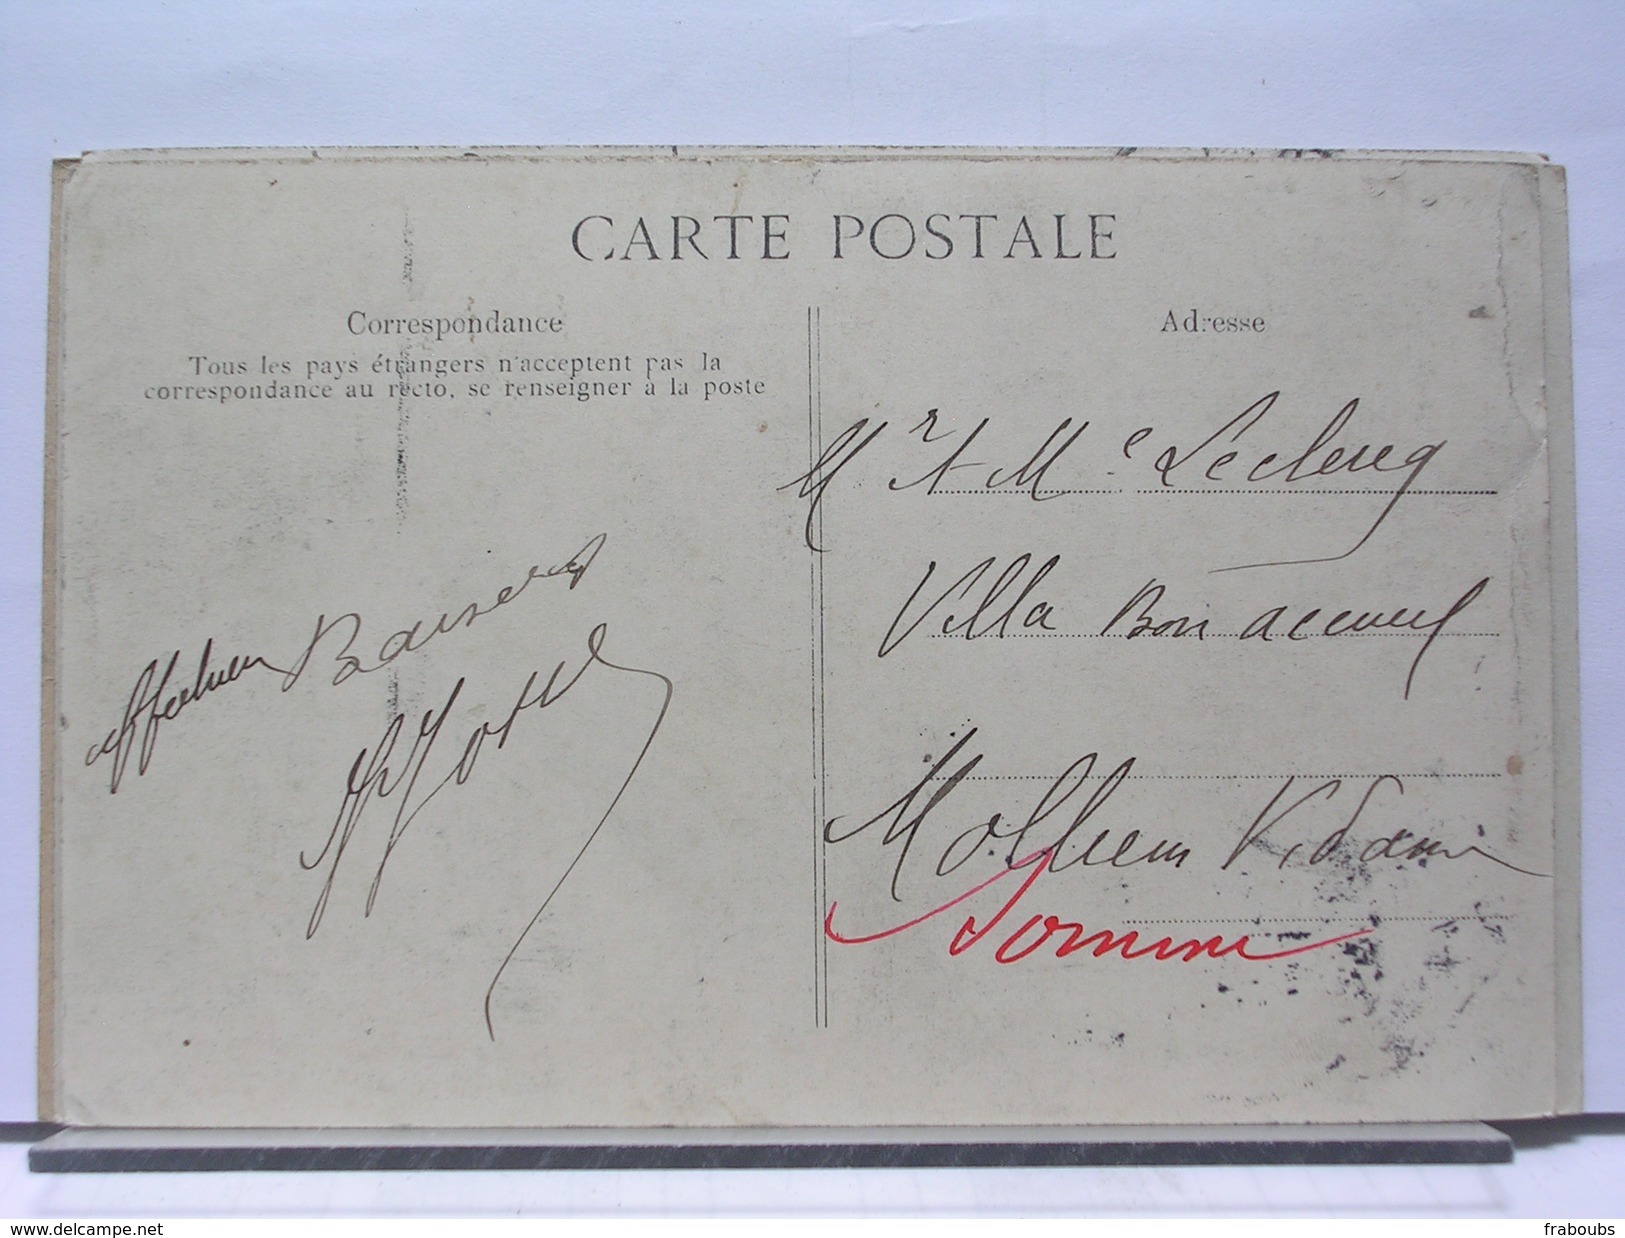 CARTE POSTALE
Correspondance
Tous les pays étrangers n'acceptent pas la
correspondance au recto, se renseigner à la poste
Adresse
Mr et Me Leclercq
Villa Bon accueil
Baisers
Somme
www.delcampe.net
fraboubs